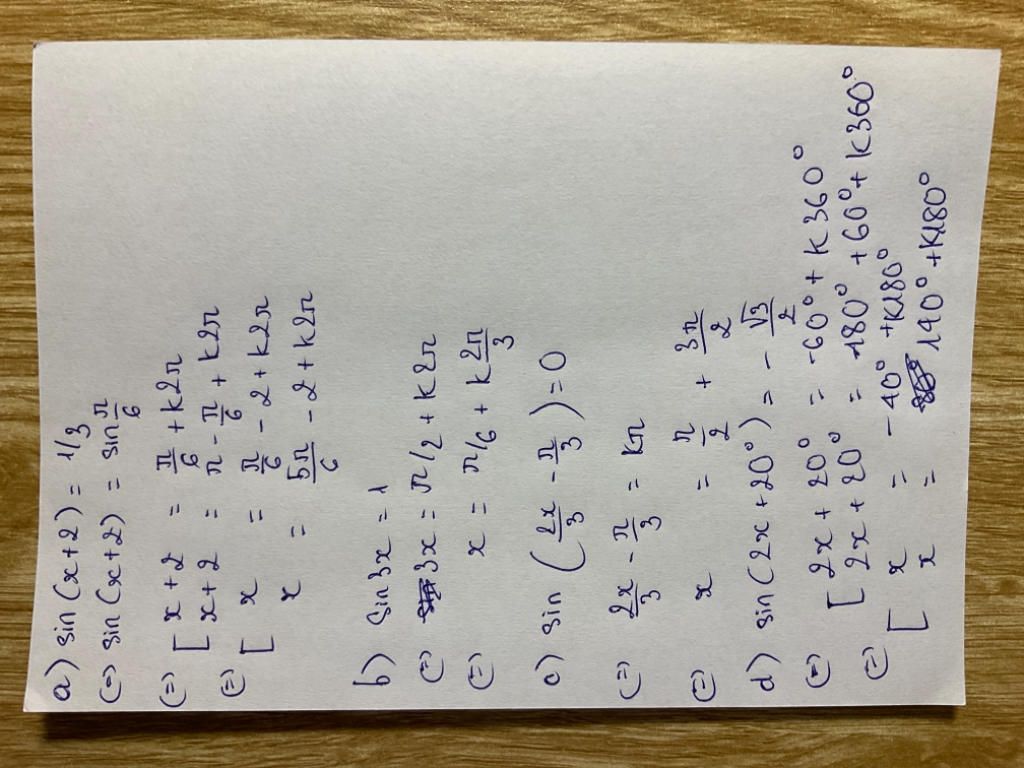 a) sin(x+2) = 1/3
(=) sin(x+2) = sin π/6
(=) [ x+2 = π/6 + k2π
x+2 = π - π/6 + k2π
(=) [ x = π/6 - 2 + k2π
x = 5π/6 - 2 + k2π
b) sin 3x = 1
(=) 3x = π/2 + k2π
(=) x = π/6 + k 2π/3
c) sin (2x/3 - π/3) = 0
(=) 2x/3 - π/3 = kπ
(=) x = π/2 + 3π/2
d) sin(2x+20°) = - √3/2
(=) [ 2x + 20° = -60° + k360°
2x + 20° = 180° + 60° + k360°
(=) [ x = -40° + k180°
x = 140° + k180°